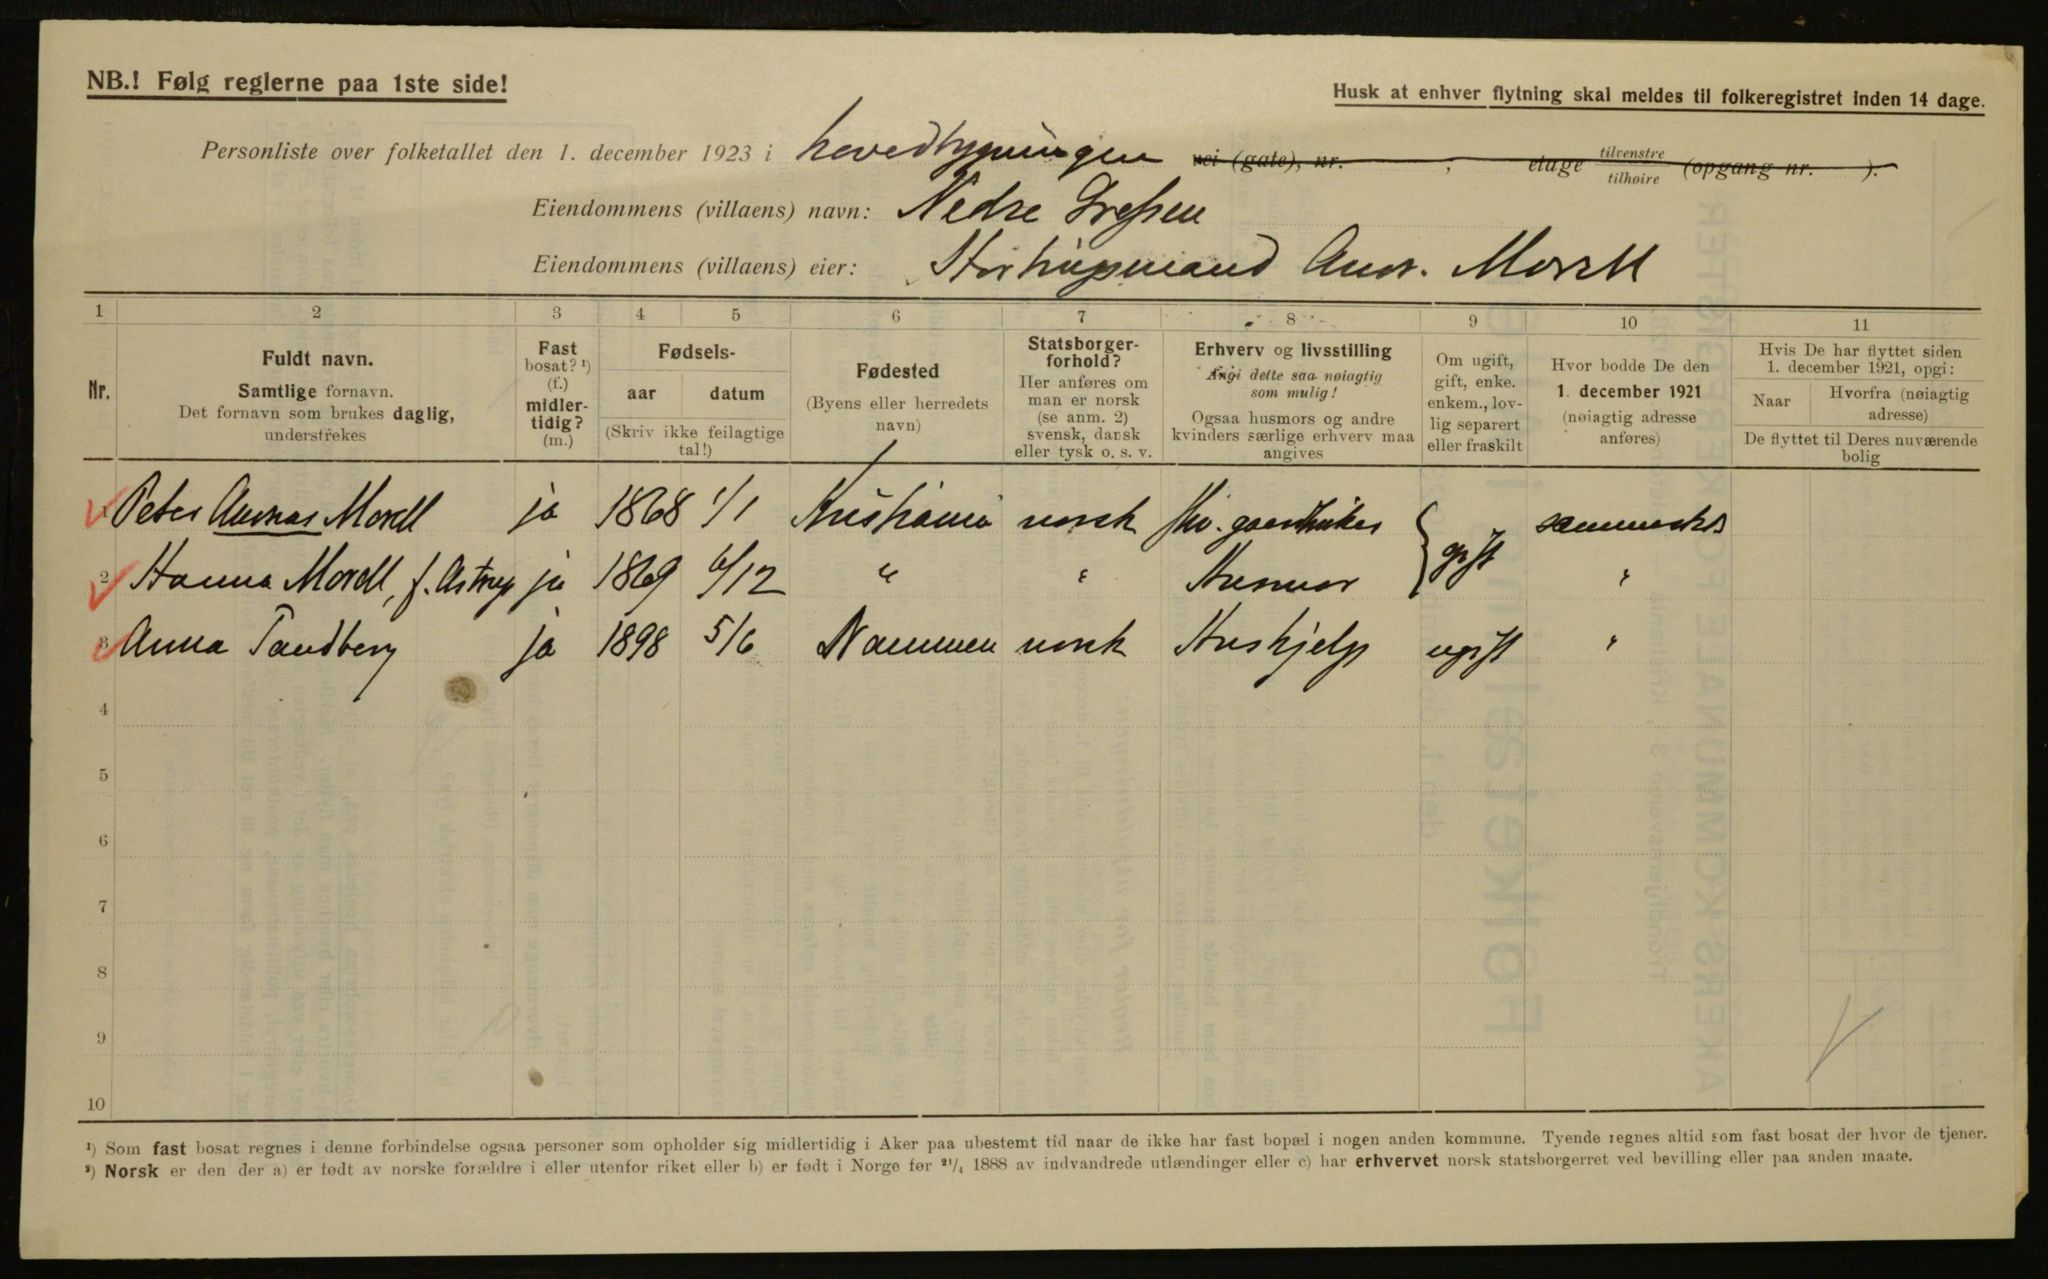 NB.! Følg reglerne paa 1ste side!
Husk at enhver flytning skal meldes til folkeregistret inden 14 dage.
Personliste over folketallet den 1. december 1923 i hovedbygningen vei (gate), nr. , etage tilvenstre tilhøire (opgang nr. ).
Eiendommens (villaens) navn: Nedre Grefsen
Eiendommens (villaens) eier: Stortingsmand Andr. Morell
1 2 3 4 5 6 7 8 9 10 11
Nr.
Fuldt navn.
Samtlige fornavn.
Det fornavn som brukes daglig,
understrekes
Fast
bosat? ¹)
(f.)
midler-
tidig?
(m.)
Fødsels-
aar datum
(Skriv ikke feilagtige
tal!)
Fødested
(Byens eller herredets
navn)
Statsborger-
forhold?
Her anføres om
man er norsk
(se anm. 2)
svensk, dansk
eller tysk o. s. v.
Erhverv og livsstilling
Angi dette saa nøiagtig
som mulig!
Ogsaa husmors og andre
kvinders særlige erhverv maa
angives
Om ugift,
gift, enke.
enkem., lov-
lig separert
eller fraskilt
Hvor bodde De den
1. december 1921
(nøiagtig adresse
anføres)
Hvis De har flyttet siden
1. december 1921, opgi:
Naar
Hvorfra (nøiagtig
adresse)
De flyttet til Deres nuværende
bolig
1 Peter Andreas Morell ja 1868 1/1 Kristiania norsk gift samme sted
2 Hanna Morell, f. Astrup ja 1869 6/12 " " Husmor "
3 Anna Tandberg ja 1898 5/6 norsk Hushjelp ugift "
4
5
6
7
8
9
10
¹) Som fast bosat regnes i denne forbindelse ogsaa personer som opholder sig midlertidig i Aker paa ubestemt tid naar de ikke har fast bopæl i nogen anden kommune. Tyende regnes altid som fast bosat der hvor de tjener.
²) Norsk er den der a) er født av norske forældre i eller utenfor riket eller b) er født i Norge før ²¹/₄ 1888 av indvandrede utlændinger eller c) har erhvervet norsk statsborgerret ved bevilling eller paa anden maate.